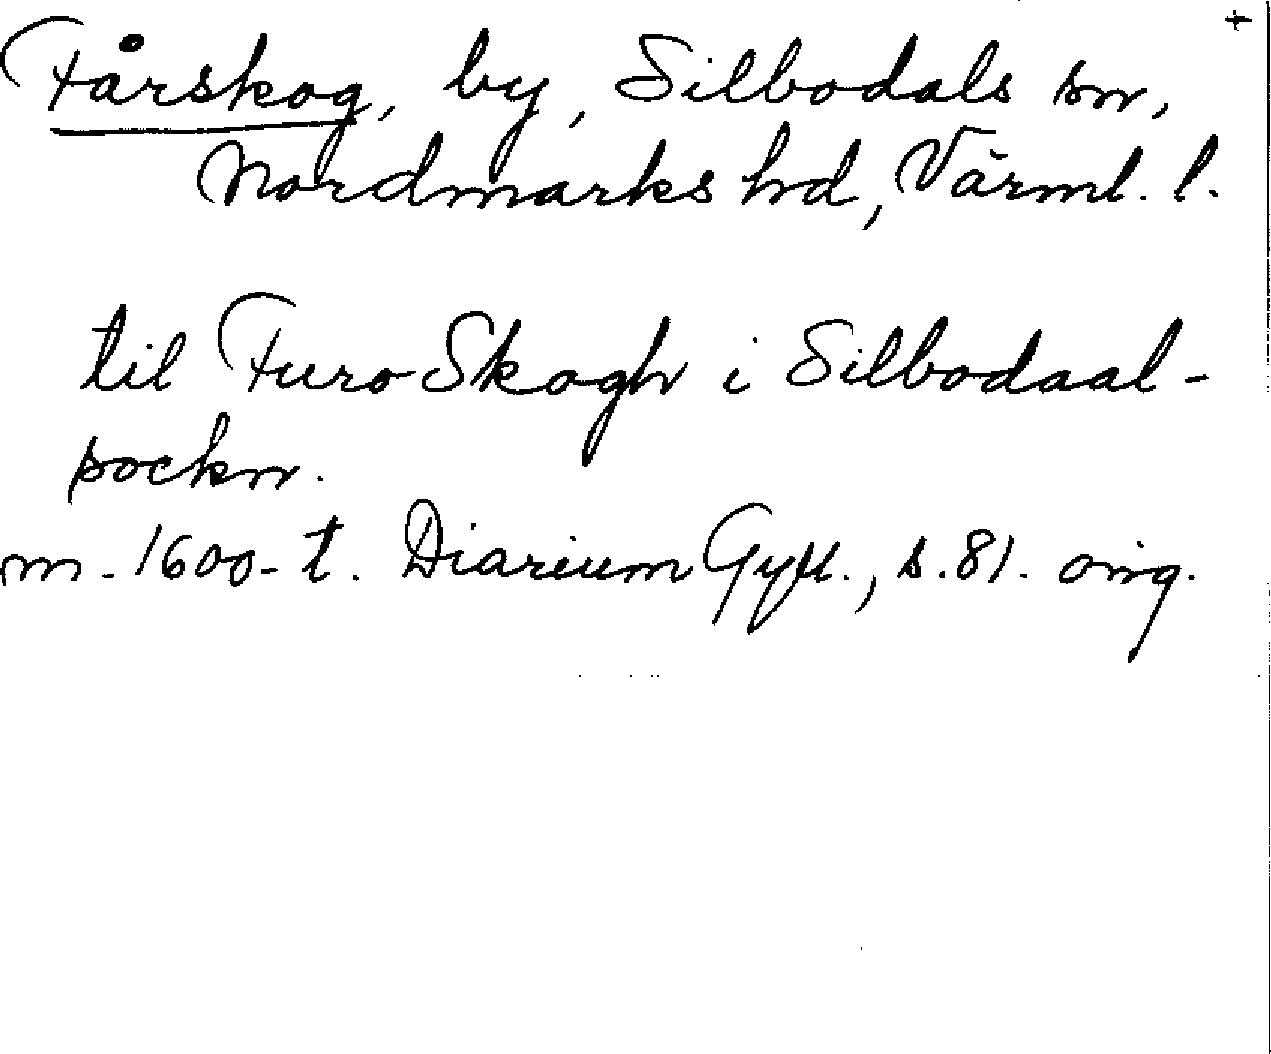 +
Fårskog, by, Silbodals sn,
Nordmarks hd, Värml. l.
til Furo Skogh i Silbodaal-
sockn.
m. 1600-t. Diarium Gyll., s. 81. orig.